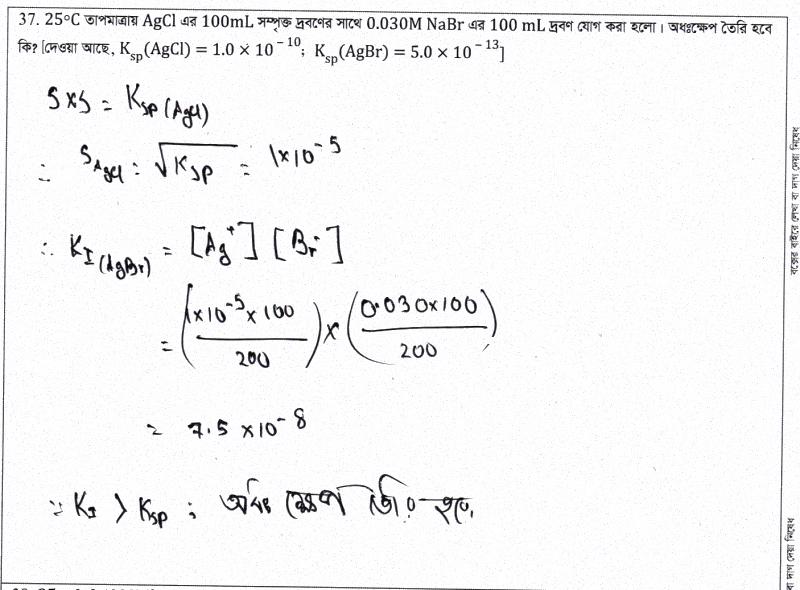 37. 25°C তাপমাত্রায় AgCl এর 100mL সম্পৃক্ত দ্রবণের সাথে 0.030M NaBr এর 100 mL দ্রবণ যোগ করা হলো। অধঃক্ষেপ তৈরি হবে
কি? [দেওয়া আছে, K_sp(AgCl) = 1.0 × 10^-10; K_sp(AgBr) = 5.0 × 10^-13]
S×S = K_sp (AgCl)
∴ S_AgCl = √K_sp = 1×10^-5
∴ K_I (AgBr) = [Ag^+] [Br^-]
= (1×10^-5 × 100 / 200) × (0.030×100 / 200)
= 7.5 ×10^-8
∵ K_I > K_sp ; অধঃক্ষেপ তৈরি হবে
বক্সের বাইরে লেখা বা দাগ দেয়া নিষেধ
বা দাগ দেয়া নিষেধ